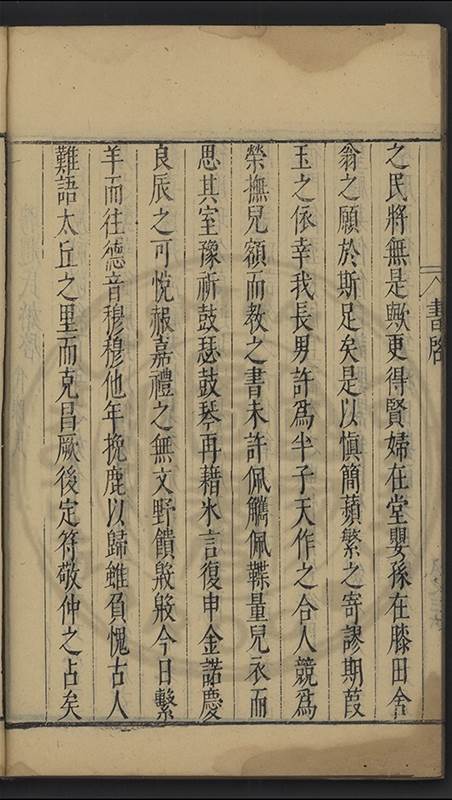 書啓
之民將無是歟更得賢婦在堂嬰孫在膝田舍
翁之願於斯足矣是以愼簡蘋蘩之寄謬期葭
玉之依幸我長男許爲半子天作之合人競爲
榮撫兒額而教之書未許佩觿佩韘量兒衣而
思其室豫祈鼓瑟鼓琴再藉氷言復申金諾慶
良辰之可悅赧嘉禮之無文野饋殷殷今日繫
羊而往德音穆穆他年挽鹿以歸雖負愧古人
難語太丘之里而克昌厥後定符敬仲之占矣